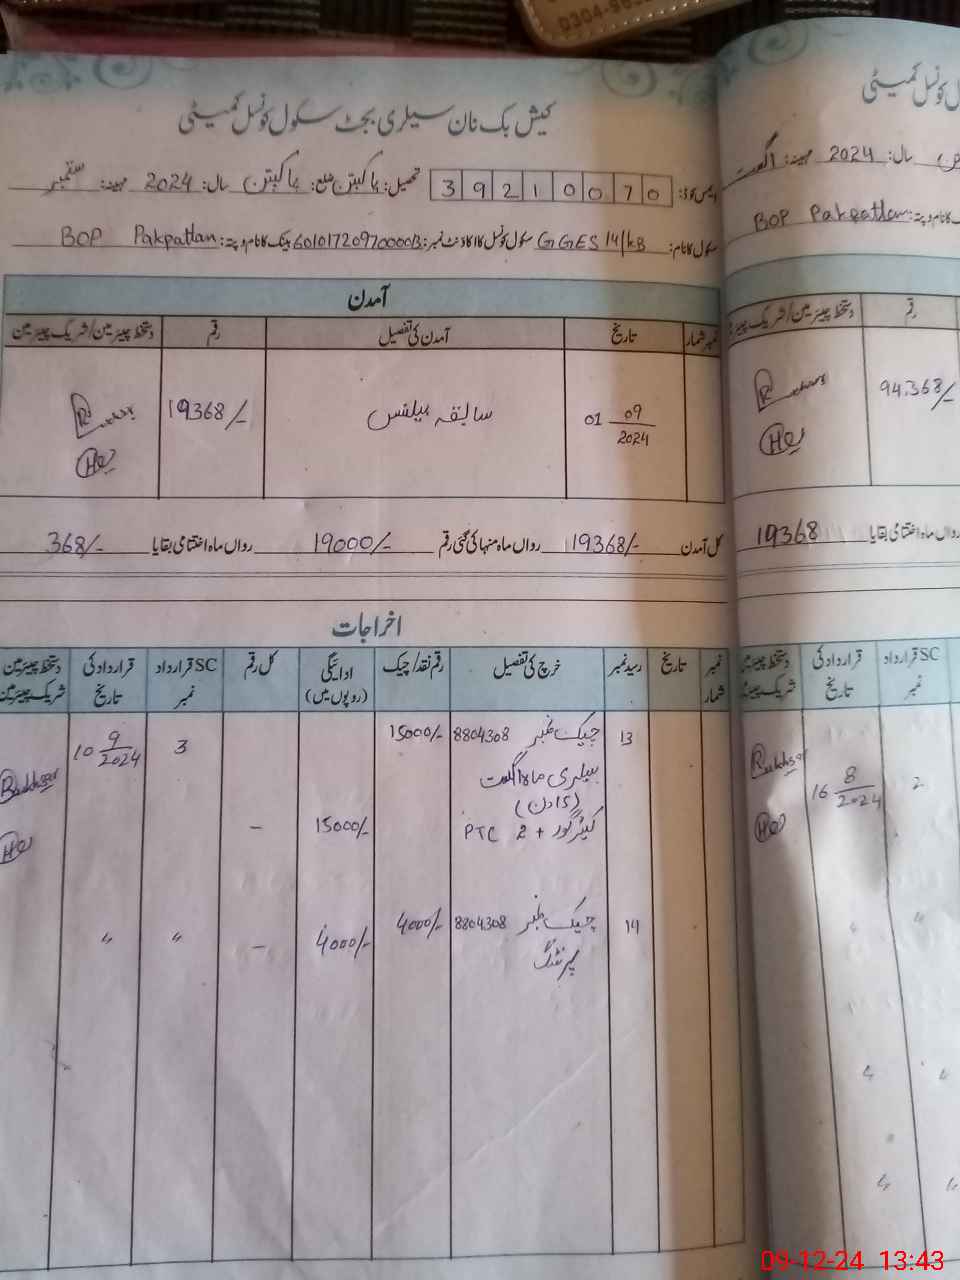 0304-963
کیش بک نان سیلری بجٹ سکول کونسل کمیٹی
ایمس کوڈ: 39210070 تحصیل: پاکپتن ضلع: پاکپتن سال: 2024 مہینہ: ستمبر
سکول کا نام: GGES 14/KB سکول کونسل کا اکاؤنٹ نمبر: 60101720970000B بینک کا نام و پتہ: BOP Pakpattan
آمدن
نمبر شمار تاریخ آمدن کی تفصیل رقم دستخط چیئرمین/شریک چیئرمین
01 09/2024 سابقہ بیلنس 19368/-
کل آمدن 19368/- رواں ماہ منہا کی گئی رقم 19000/- رواں ماہ اختتامی بقایا 368/-
اخراجات
نمبر شمار تاریخ رسید نمبر خرچ کی تفصیل رقم نقد/چیک ادائیگی (روپوں میں) کل رقم SC قرارداد نمبر قرارداد کی تاریخ دستخط چیئرمین شریک چیئرمین
13 چیک نمبر 8804308 15000/- 3 10 9/2024
سیلری ماہ اگست
(15 دن)
کیئر گور + 2 PTC 15000/- –
14 چیک نمبر 8804308 4000/- 4000/- – " "
پرنٹنگ
کونسل کمیٹی
سال: 2024 مہینہ: اگست
کا نام و پتہ: BOP Pakpattan
رقم دستخط چیئرمین/شریک چیئرمین
94,368/-
رواں ماہ اختتامی بقایا 19368
SC قرارداد نمبر قرارداد کی تاریخ دستخط چیئرمین شریک چیئرمین
2 16 8/2024
" "
" "
" "
09-12-24 13:43